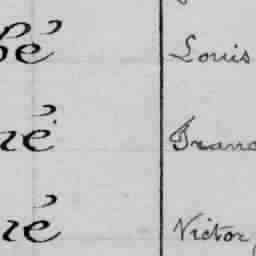 bé Louis
né Franc
né Victor